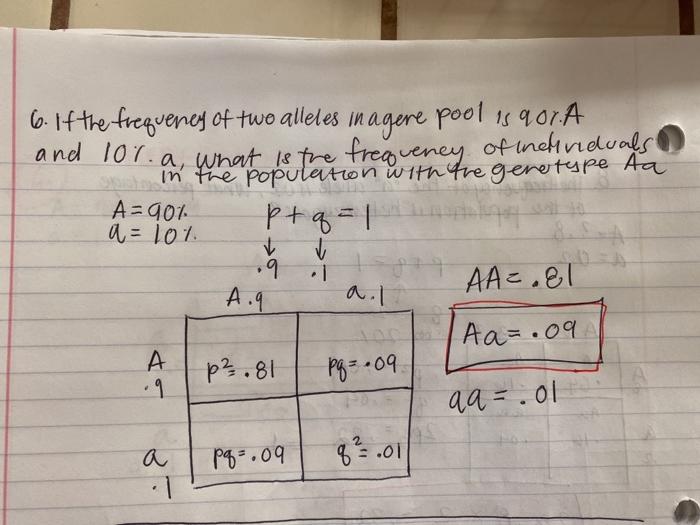 6. If the frequency of two alleles in a gene pool is 90% A
and 10% a, what is the frequency of individuals
in the population with the genotype Aa
A = 90%
a = 10%
p + q = 1
↓ ↓
.9 .1
A .9 a .1
A .9
p² = .81
pq = .09
a .1
pq = .09
q² = .01
AA = .81
Aa = .09
aa = .01